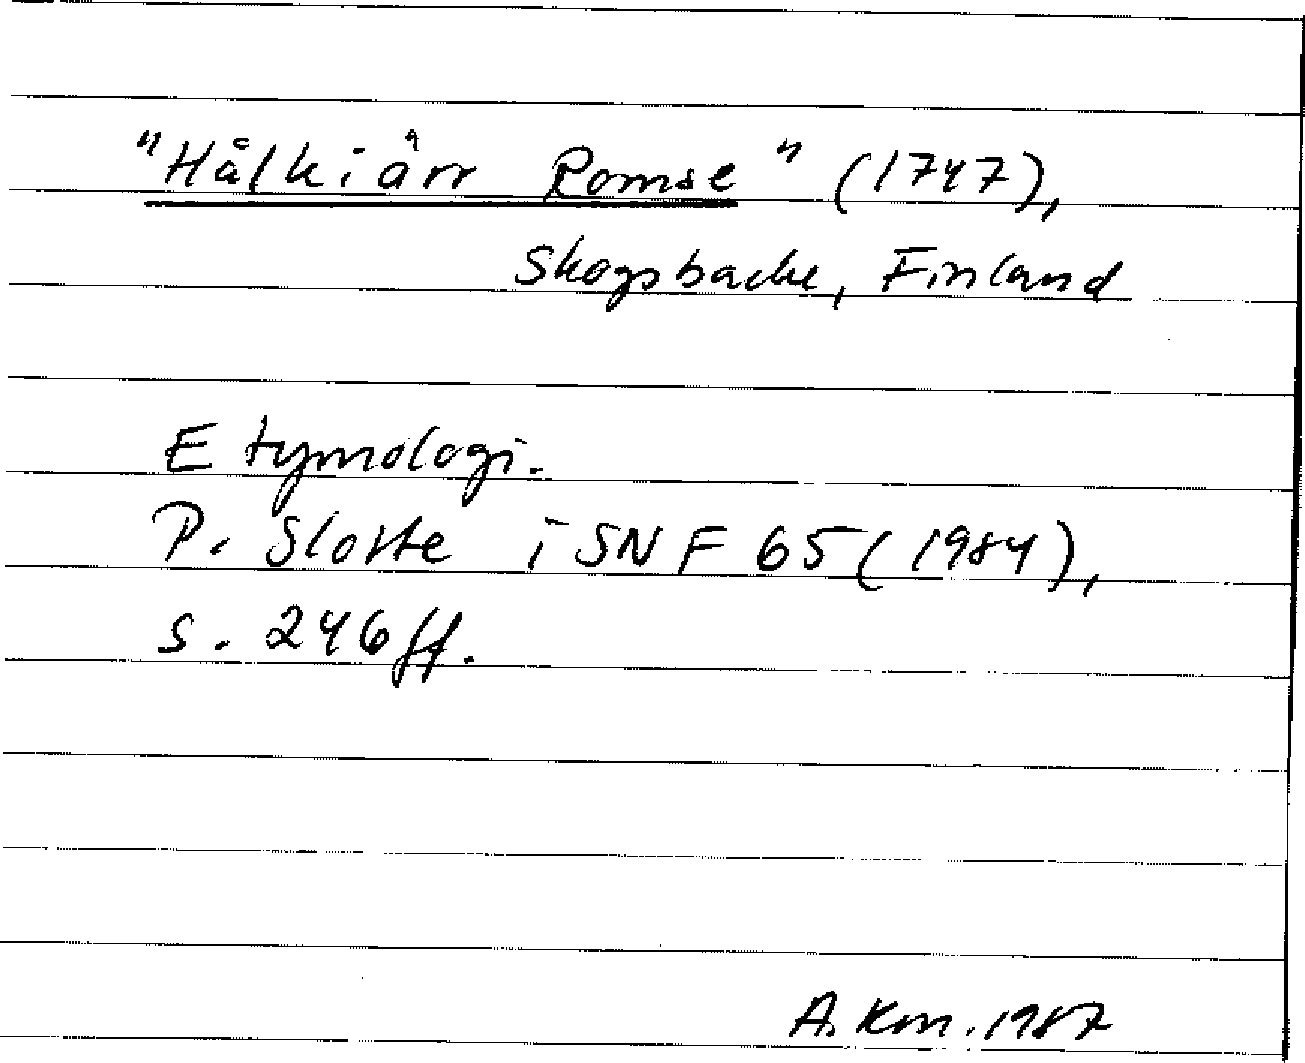 "Hålkiårr Romse" (1747),
Skogsbacke, Finland
Etymologi.
P. Slotte i SNF 65 (1984),
s. 246 ff.
A. Km. 1987